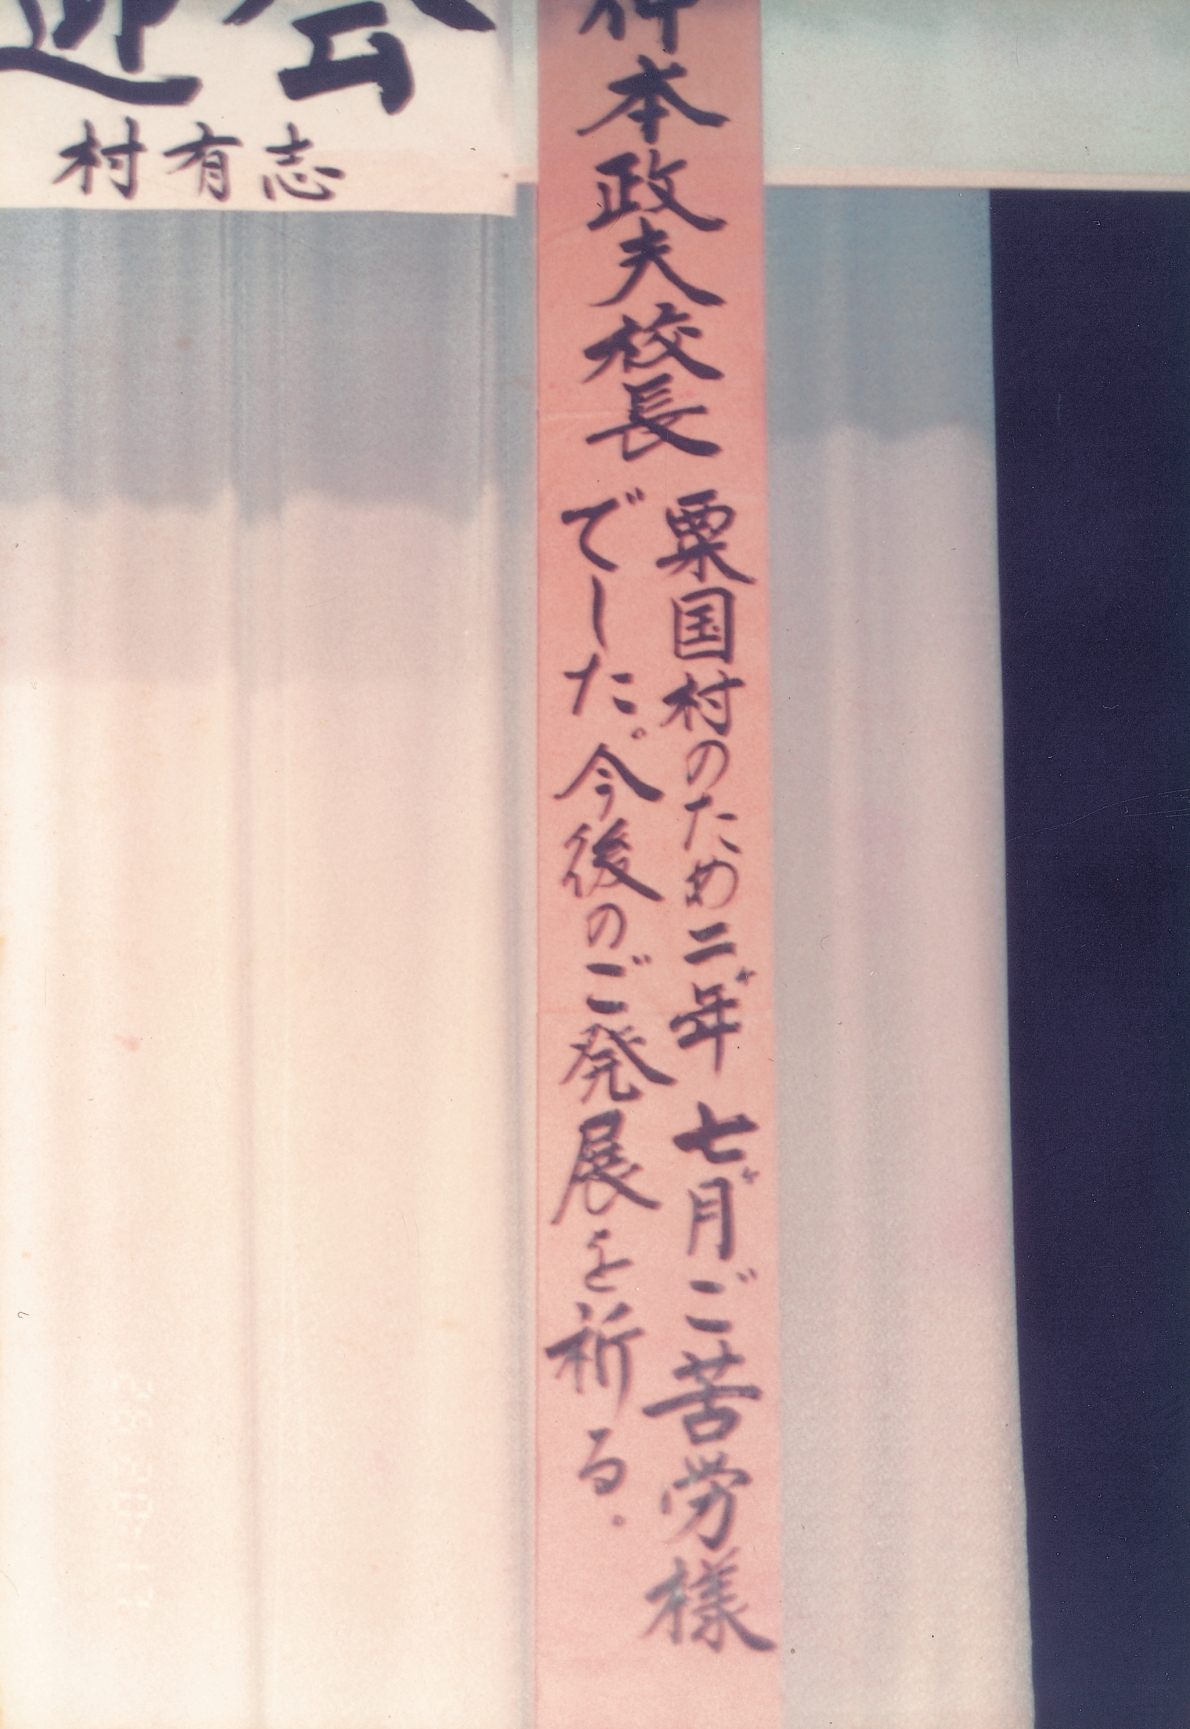 迎会
村有志
仲本政夫校長
粟国村のため二年七ヶ月ご苦労様
でした。今後のご発展を祈る。